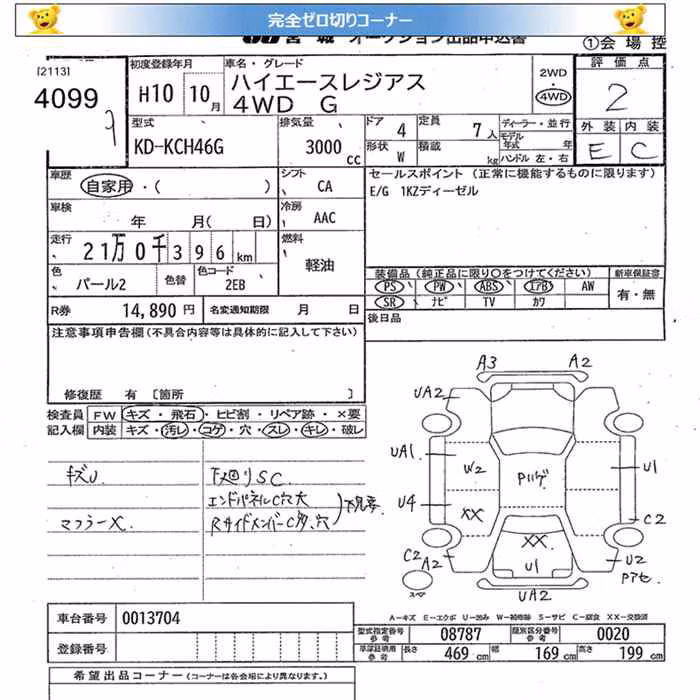 完全ゼロ切りコーナー
JU 宮城 オークション出品申込書
①会場控
[2113]
4099
初度登録年月
H10 10月
車名・グレード
ハイエースレジアス
4WD G
2WD
・
4WD
評価点
2
外装 内装
E C
型式
KD-KCH46G
排気量
3000 cc
ドア 4
形状 W
定員 7人
積載 kg
ディーラー・並行
モデル
年式 年
ハンドル 左・右
車歴
自家用・( )
シフト
CA
セールスポイント (正常に機能するものに限ります)
E/G 1KZディーゼル
車検
年 月( 日)
冷房
AAC
走行
21万0千396km
燃料
軽油
色
パール2
色替
色コード
2EB
装備品 (純正品に限り○をつけてください)
新車保証書
PS PW ABS エアB AW
SR ナビ TV カワ
有・無
R券 14,890円 名変通知期限 月 日
後日品
注意事項申告欄(不具合内容等は具体的に記入して下さい)
修復歴 有 〔箇所 〕
検査員 FW キズ・飛石・ヒビ割・リペア跡・×要
記入欄 内装 キズ・汚レ・コゲ・穴・スレ・キレ・破レ
キズU
マフラーX
下廻りSC
エンドパネルC穴大
RサイドメンバーC多、穴
下見要
A3 A2
UA2
UA1 W2 Pハゲ U1
U4 XX
C2
XX
C2 A2 U1 U2
Pアセ
スペア
UA2
A―キズ E―エクボ U―凹み W―補修跡 S―サビ C―腐食 XX―交換済
車台番号 0013704
登録番号
型式指定番号 参考 08787 類別区分番号 参考 0020
車庫証明用 参考 長さ 469cm 幅 169cm 高さ 199cm
希望出品コーナー (コーナーは各会場により異なります。)